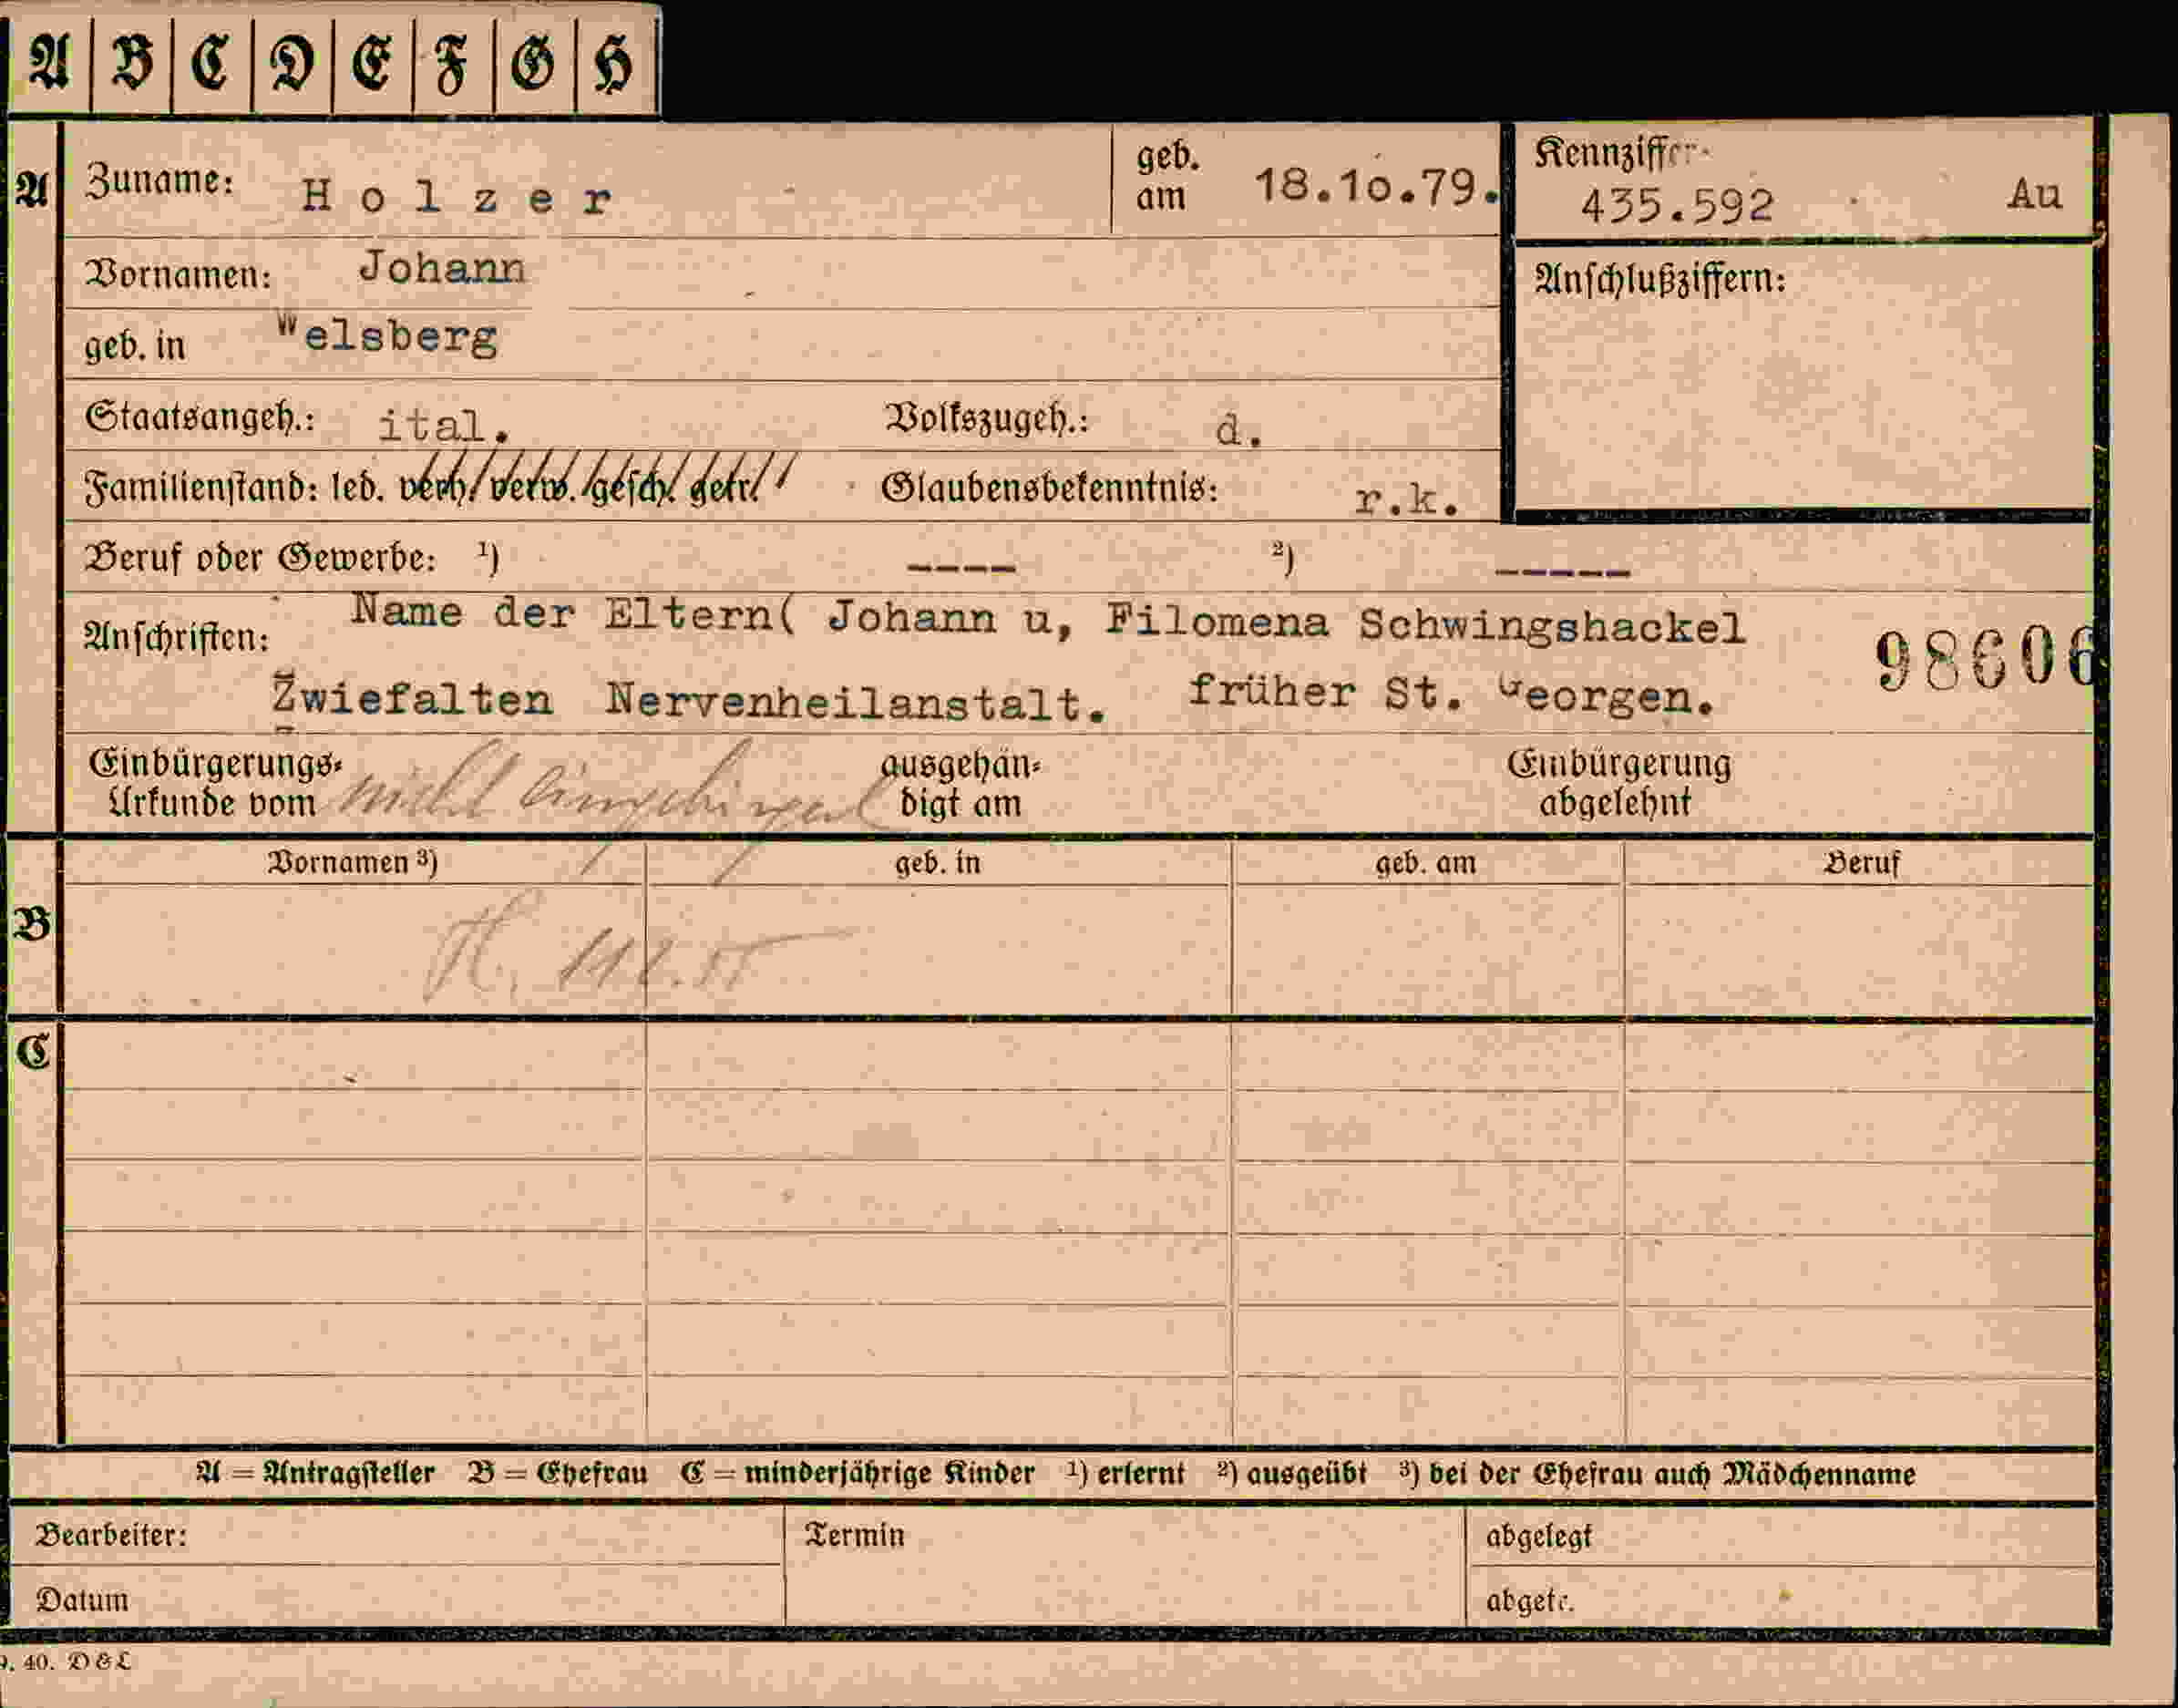 A B C D E F G H
A Zuname: Holzer geb. am 18.10.79. Kennziffer 435.592 Au
Vornamen: Johann Anschlußziffern:
geb. in Welsberg
Staatsangeh.: ital. Volkszugeh.: d.
Familienstand: led. verh. verw. gesch. getr. Glaubensbekenntnis: r.k.
Beruf oder Gewerbe: ¹) ---- ²) -----
Anschriften: Name der Eltern( Johann u, Filomena Schwingshackel
98606
Zwiefalten Nervenheilanstalt. früher St. Georgen.
Einbürgerungs- ausgehän- Einbürgerung
Urkunde vom nicht eingebürgert digt am abgelehnt
Vornamen ³) geb. in geb. am Beruf
B
C
A = Antragsteller B = Ehefrau C = minderjährige Kinder ¹) erlernt ²) ausgeübt ³) bei der Ehefrau auch Mädchenname
Bearbeiter: Termin abgelegt
Datum abgetr.
40. D & L